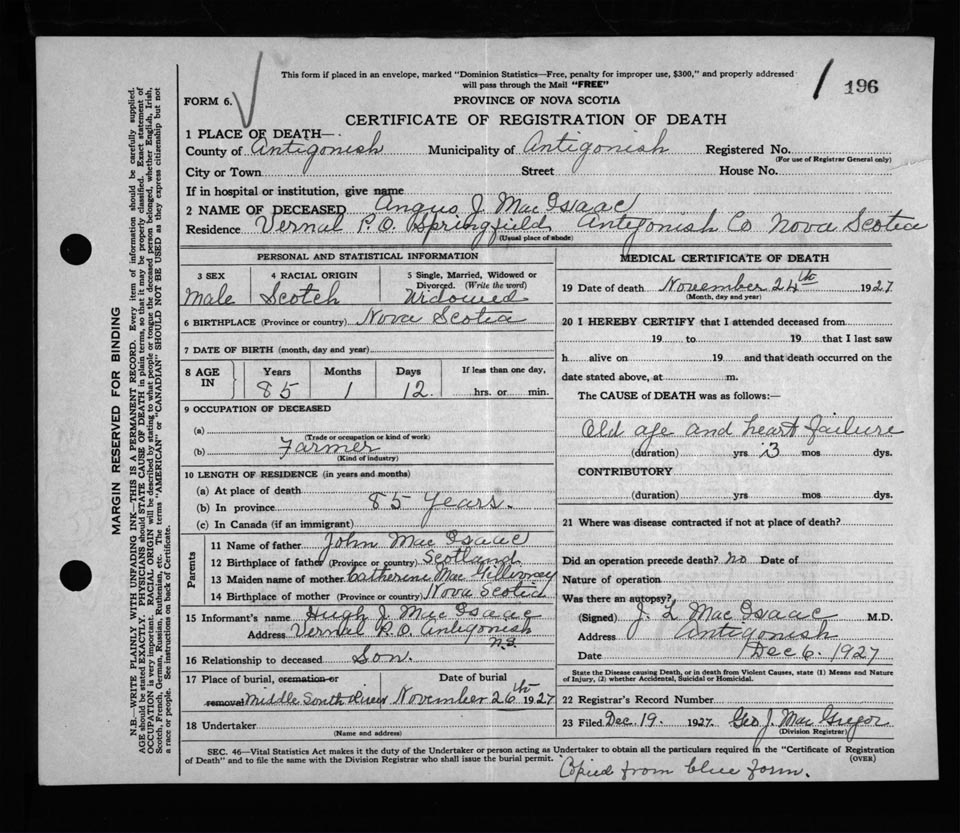 This form if placed in an envelope, marked "Dominion Statistics—Free, penalty for improper use, $300," and properly addressed
will pass through the Mail "FREE"
196
FORM 6.
PROVINCE OF NOVA SCOTIA
CERTIFICATE OF REGISTRATION OF DEATH
1 PLACE OF DEATH—
County of Antigonish Municipality of Antigonish Registered No.
(For use of Registrar General only)
City or Town Street House No.
If in hospital or institution, give name
2 NAME OF DECEASED Angus J. MacIsaac
Residence Vernal P.O. Springfield Antigonish Co Nova Scotia
(Usual place of abode)
PERSONAL AND STATISTICAL INFORMATION
3 SEX 4 RACIAL ORIGIN 5 Single, Married, Widowed or
Divorced. (Write the word)
Male Scotch Widowed
6 BIRTHPLACE (Province or country) Nova Scotia
7 DATE OF BIRTH (month, day and year)
8 AGE IN Years Months Days If less than one day,
85 1 12. hrs. or min.
9 OCCUPATION OF DECEASED
(a)
(Trade or occupation or kind of work)
(b) Farmer
(Kind of industry)
10 LENGTH OF RESIDENCE (in years and months)
(a) At place of death
(b) In province 85 Years.
(c) In Canada (if an immigrant)
Parents
11 Name of father John MacIsaac
12 Birthplace of father (Province or country) Scotland
13 Maiden name of mother Catherine MacGillivray
14 Birthplace of mother (Province or country) Nova Scotia
15 Informant's name Hugh J. MacIsaac
Address Vernal P.O. Antigonish
N.S.
16 Relationship to deceased Son.
17 Place of burial, cremation or Date of burial
removal Middle South River November 26th 1927
18 Undertaker
(Name and address)
MEDICAL CERTIFICATE OF DEATH
19 Date of death November 24th 1927
(Month, day and year)
20 I HEREBY CERTIFY that I attended deceased from
19 to 19 that I last saw
h alive on 19 and that death occurred on the
date stated above, at m.
The CAUSE of DEATH was as follows:—
Old age and heart failure
(duration) yrs 3 mos dys.
CONTRIBUTORY
(duration) yrs mos dys.
21 Where was disease contracted if not at place of death?
Did an operation precede death? no Date of
Nature of operation
Was there an autopsy?
(Signed) J. L. MacIsaac M.D.
Address Antigonish
Date Dec 6. 1927
State the Disease causing Death, or in death from Violent Causes, state (1) Means and Nature
of Injury, (2) whether Accidental, Suicidal or Homicidal.
22 Registrar's Record Number
23 Filed Dec. 19. 1927. Geo J. MacGregor
(Division Registrar)
SEC. 46—Vital Statistics Act makes it the duty of the Undertaker or person acting as Undertaker to obtain all the particulars required in the "Certificate of Registration
of Death" and to file the same with the Division Registrar who shall issue the burial permit.
(OVER)
Copied from blue form.
MARGIN RESERVED FOR BINDING
N.B.—WRITE PLAINLY WITH UNFADING INK—THIS IS A PERMANENT RECORD. Every item of information should be carefully supplied.
AGE should be stated EXACTLY. PHYSICIANS should STATE CAUSE OF DEATH in plain terms, so that it may be properly classified. Exact statement of
OCCUPATION is very important. RACIAL ORIGIN will be described by stating to what people or tongue the deceased person belonged, whether English, Irish,
Scotch, French, German, Russian, Ruthenian, etc. The terms "AMERICAN" or "CANADIAN" SHOULD NOT BE USED as they express citizenship but not
a race or people. See instructions on back of Certificate.